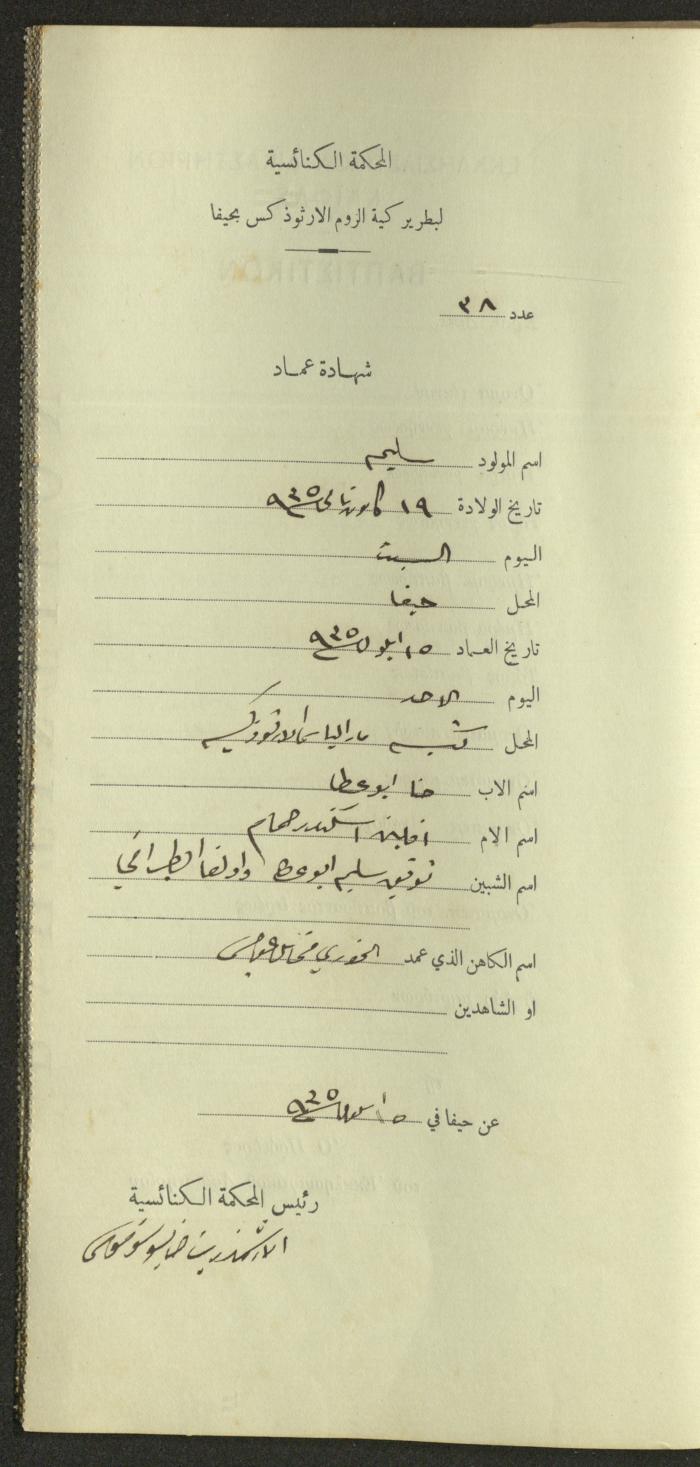 المحكمة الكنائسية
لبطريركية الروم الارثوذكس بحيفا
عدد ٣٨
شهادة عماد
اسم المولود سليم
تاريخ الولادة ١٩ كانون ثاني ٩٣٥
اليوم السبت
المحل حيفا
تاريخ العماد ١٥ ايلول ٩٣٥
اليوم الاحد
المحل كنيسة مار الياس الارثوذكسية
اسم الاب حنا ابو عطا
اسم الام اسكندر حمام
اسم الشبين توفيق سليم ابو عطا واولغا
اسم الكاهن الذي عمد الخوري
او الشاهدين
عن حيفا في ١٥ ايلول ٩٣٥
رئيس المحكمة الكنائسية
الارشمندريت